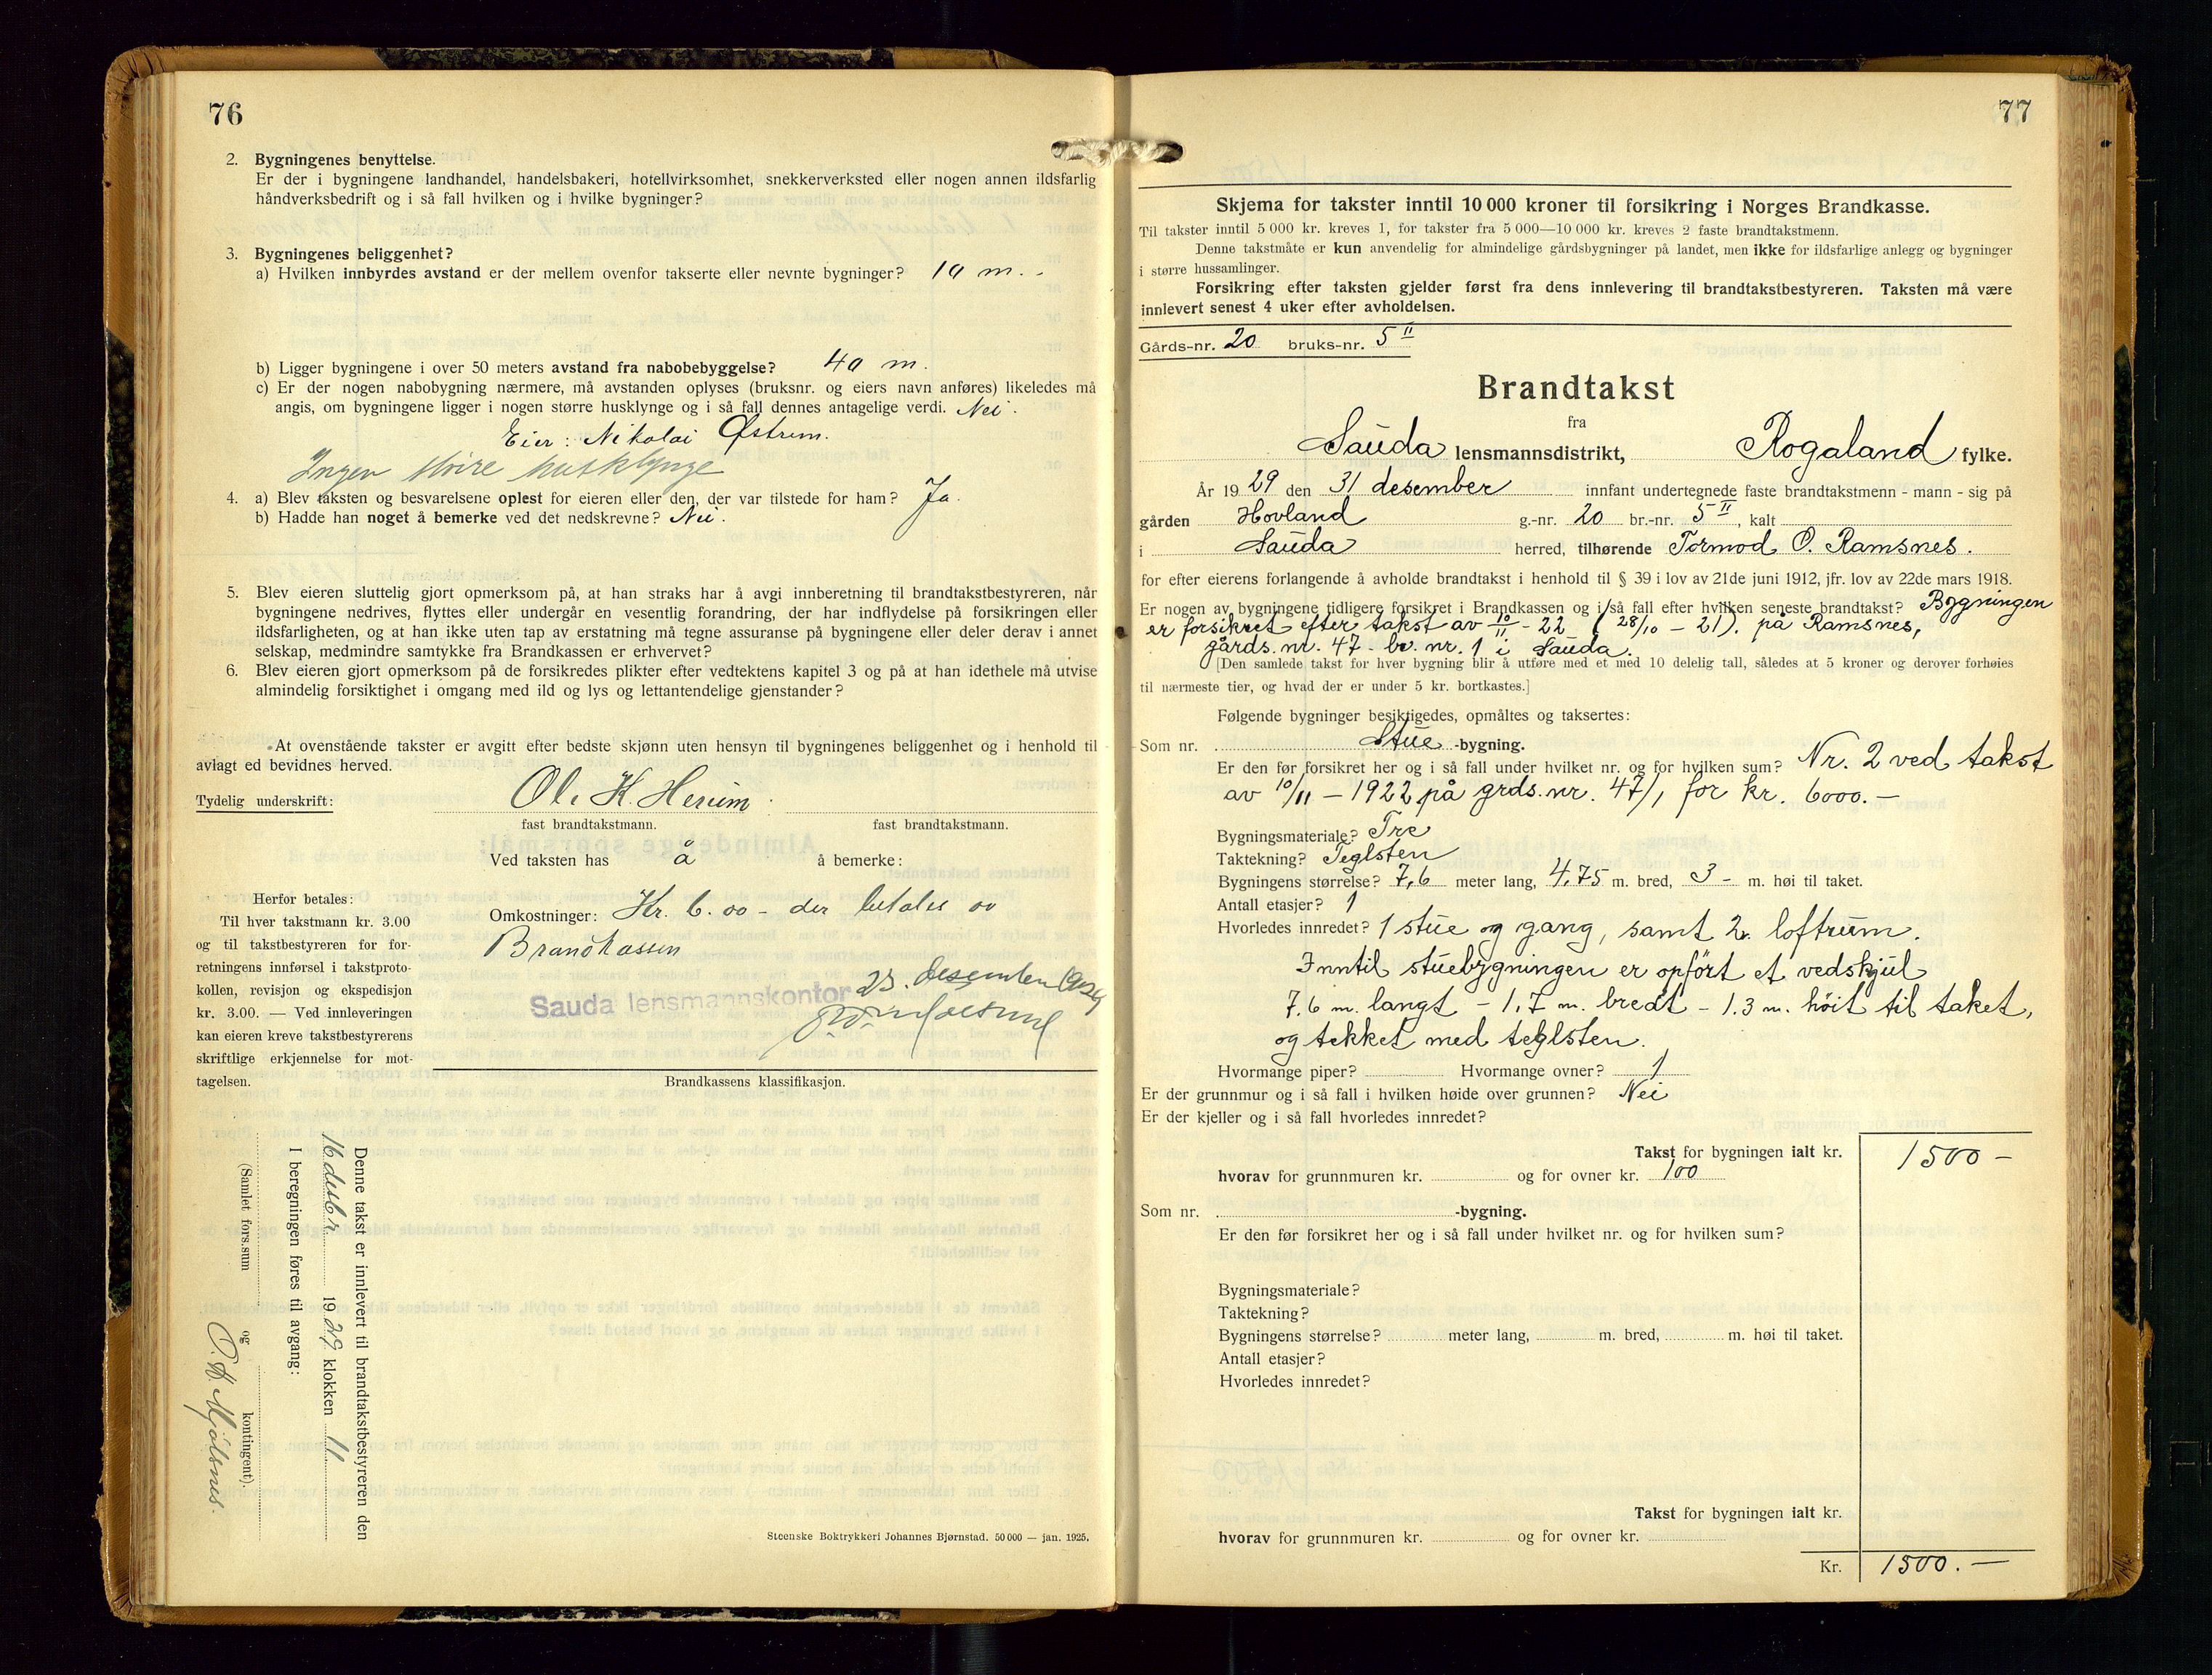 76
2. Bygningenes benyttelse.
Er der i bygningene landhandel, handelsbakeri, hotellvirksomhet, snekkerverksted eller nogen annen ildsfarlig
håndverksbedrift og i så fall hvilken og i hvilke bygninger?
3. Bygningenes beliggenhet?
a) Hvilken innbyrdes avstand er der mellem ovenfor takserte eller nevnte bygninger? 10 m. -
b) Ligger bygningene i over 50 meters avstand fra nabobebyggelse? 40 m.
c) Er der nogen nabobygning nærmere, må avstanden oplyses (bruksnr. og eiers navn anføres) likeledes må
angis, om bygningene ligger i nogen større husklynge og i så fall dennes antagelige verdi. Nei.
Eier: Nikolai Østrem.
Ingen større husklynge
4. a) Blev taksten og besvarelsene oplest for eieren eller den, der var tilstede for ham? Ja.
b) Hadde han noget å bemerke ved det nedskrevne? Nei.
5. Blev eieren sluttelig gjort opmerksom på, at han straks har å avgi innberetning til brandtakstbestyreren, når
bygningene nedrives, flyttes eller undergår en vesentlig forandring, der har indflydelse på forsikringen eller
ildsfarligheten, og at han ikke uten tap av erstatning må tegne assuranse på bygningene eller deler derav i annet
selskap, medmindre samtykke fra Brandkassen er erhvervet?
6. Blev eieren gjort opmerksom på de forsikredes plikter efter vedtektens kapitel 3 og på at han idethele må utvise
almindelig forsiktighet i omgang med ild og lys og lettantendelige gjenstander?
At ovenstående takster er avgitt efter bedste skjønn uten hensyn til bygningenes beliggenhet og i henhold til
avlagt ed bevidnes herved.
Tydelig underskrift: Ole K. Herum.
fast brandtakstmann. fast brandtakstmann.
Ved taksten has å å bemerke:
Herfor betales:
Til hver takstmann kr. 3.00
og til takstbestyreren for for-
retningens innførsel i takstproto-
kollen, revisjon og ekspedisjon
kr. 3.00. — Ved innleveringen
kan eieren kreve takstbestyrerens
skriftlige erkjennelse for mot-
tagelsen.
Omkostninger: Kr. 6.00 - der betales av
Brandkassen
Sauda lensmannskontor 23. desember 1929
Brandkassens klassifikasjon.
Denne takst er innlevert til brandtakstbestyreren den
16 desbr. 1929 klokken 11
I beregningen føres til avgang:
(Samlet fors.sum og kontingent).
Steenske Boktrykkeri Johannes Bjørnstad. 50 000 — jan. 1925.
77
Skjema for takster inntil 10 000 kroner til forsikring i Norges Brandkasse.
Til takster inntil 5 000 kr. kreves 1, for takster fra 5 000—10 000 kr. kreves 2 faste brandtakstmenn.
Denne takstmåte er kun anvendelig for almindelige gårdsbygninger på landet, men ikke for ildsfarlige anlegg og bygninger
i større hussamlinger.
Forsikring efter taksten gjelder først fra dens innlevering til brandtakstbestyreren. Taksten må være
innlevert senest 4 uker efter avholdelsen.
Gårds-nr. 20 bruks-nr. 5 II
Brandtakst
fra
Sauda lensmannsdistrikt, Rogaland fylke.
År 1929 den 31 desember innfant undertegnede faste brandtakstmenn - mann - sig på
gården Hovland g.-nr. 20 br.-nr. 5 II, kalt
i Sauda herred, tilhørende Tormod O. Ramsnes.
for efter eierens forlangende å avholde brandtakst i henhold til § 39 i lov av 21de juni 1912, jfr. lov av 22de mars 1918.
Er nogen av bygningene tidligere forsikret i Brandkassen og i så fall efter hvilken seneste brandtakst? Bygningen
er forsikret efter takst av 10/11 - 22 (28/10 - 21). på Ramsnes,
gårds.nr. 47 - br. nr. 1 i Sauda.
[Den samlede takst for hver bygning blir å utføre med et med 10 delelig tall, således at 5 kroner og derover forhøies
til nærmeste tier, og hvad der er under 5 kr. bortkastes.]
Følgende bygninger besiktigedes, opmåltes og taksertes:
Som nr. Stue -bygning.
Er den før forsikret her og i så fall under hvilket nr. og for hvilken sum? Nr. 2 ved takst
av 10/11 - 1922 på grds.nr. 47/1 for kr. 6000.-
Bygningsmateriale? Tre
Taktekning? Teglsten
Bygningens størrelse? 7,6 meter lang, 4,75 m. bred, 3 - m. høi til taket.
Antall etasjer? 1
Hvorledes innredet? 1 stue og gang, samt 2 loftrum.
Inntil stuebygningen er opført et vedskjul
7,6 m. langt - 1,7 m. bredt - 1.3 m. höit til taket,
og tekket med teglsten.
Hvormange piper? Hvormange ovner? 1
Er der grunnmur og i så fall i hvilken høide over grunnen? Nei
Er der kjeller og i så fall hvorledes innredet?
Takst for bygningen ialt kr. 1500 -
hvorav for grunnmuren kr. og for ovner kr. 100
Som nr. -bygning.
Er den før forsikret her og i så fall under hvilket nr. og for hvilken sum?
Bygningsmateriale?
Taktekning?
Bygningens størrelse? meter lang, m. bred, m. høi til taket.
Antall etasjer?
Hvorledes innredet?
Takst for bygningen ialt kr.
hvorav for grunnmuren kr. og for ovner kr.
Kr. 1500. -